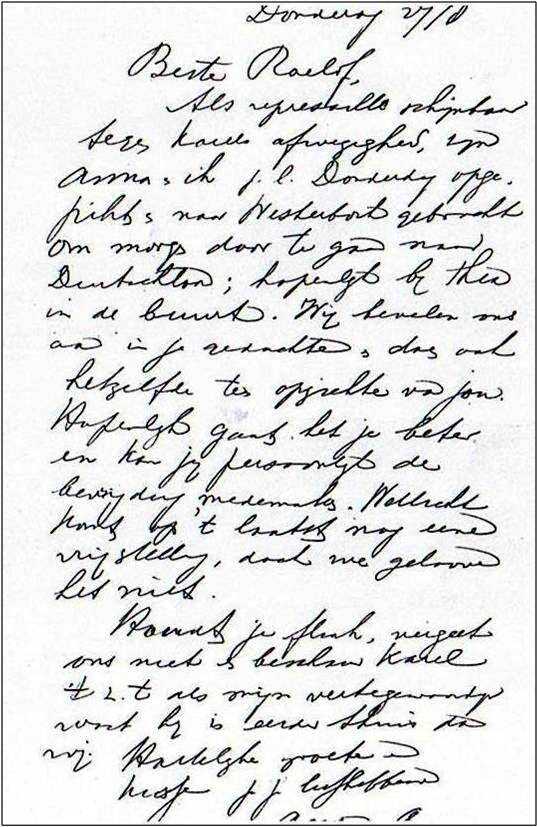 Donderdag 27/8
Beste Roelof,
Als represaille schijnbaar
tegen Karels afwezigheid, zijn
Anna & ik j.l. Donderdag opge-
pikt & naar Westerbork gebracht
om morgen door te gaan naar
Duitschland; hopenlijk bij Thea
in de buurt. Wij bevelen ons
aan in je gedachten & doen ook
hetzelfde ten opzichte van jou.
Hopenlijk gaat het je beter
en kan jij persoonlijk de
bevrijding medemaken. Wellicht
komt op 't laatst nog eene
vrijstelling, doch we gelooven
het niet.
Houdt je flink, vergeet
ons niet & beschouw Karel
't z.t. als mijn vertegenwoordiger
want hij is eerder thuis dan
wij. Hartelijke groeten en
kusse v. je liefhebbende